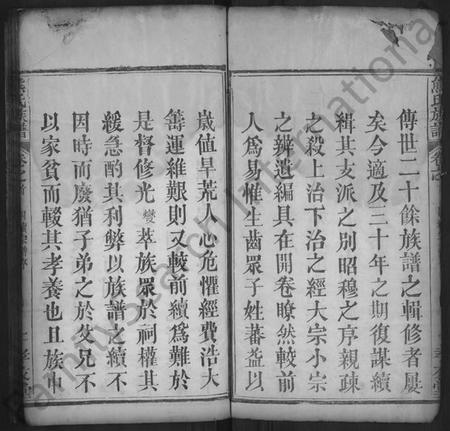 熊氏族譜
傳世二十餘族譜之輯修者屢
矣今適及三十年之期復謀續
緝其支派之別昭穆之序親疎
之殺上治下治之經大宗小宗
之辨遺編具在開卷瞭然較前
人爲易惟生齒眾子姓蕃益以
歲値旱荒人心危懼經費浩大
籌運維艱則又較前續爲難於
是督修光燮萃族眾於祠權其
緩急酌其利弊以族譜之續不
因時而廢猶子弟之於父兄不
以家貧而輟其孝養也且族中
氏族譜
FamilySearch International